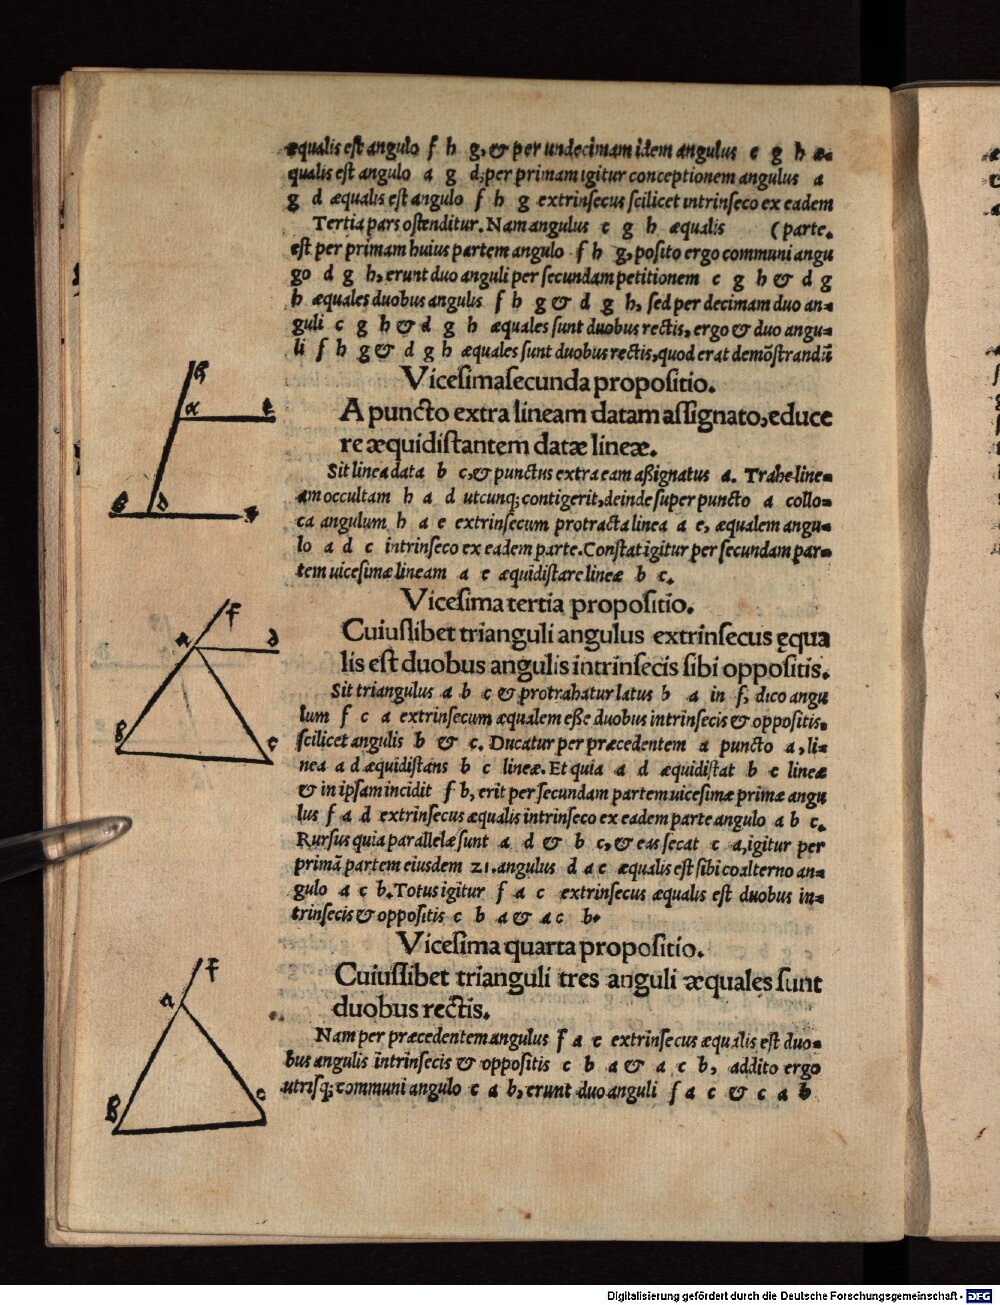 æqualis est angulo f h g, & per undecimam idem angulus c g h æ-
qualis est angulo a g d, per primam igitur conceptionem angulus a
g d æqualis est angulo f h g extrinsecus scilicet intrinseco ex eadem
Tertia pars ostenditur. Nam angulus c g h æqualis (parte.
est per primam huius partem angulo f h g, posito ergo communi angu
go d g h, erunt duo anguli per secundam petitionem c g h & d g
h æquales duobus angulis f h g & d g h, sed per decimam duo an-
guli c g h & d g h æquales sunt duobus rectis, ergo & duo angu-
li f h g & d g h æquales sunt duobus rectis, quod erat demõstrandũ
Vicesimasecunda propositio.
A puncto extra lineam datam assignato, educe
re æquidistantem datæ lineæ.
Sit linea data b c, & punctus extra eam aßignatus a. Trahe line-
am occultam h a d utcunq; contigerit, deinde super puncto a collo-
ca angulum h a e extrinsecum protracta linea a e, æqualem angu-
lo a d c intrinseco ex eadem parte. Constat igitur per secundam par-
tem uicesimæ lineam a e æquidistare lineæ b c.
Vicesima tertia propositio.
Cuiuslibet trianguli angulus extrinsecus ęqua
lis est duobus angulis intrinsecis sibi oppositis.
Sit triangulus a b c & protrahatur latus b a in f, dico angu
lum f c a extrinsecum æqualem eße duobus intrinsecis & oppositis,
scilicet angulis b & c. Ducatur per præcedentem a puncto a, li-
nea a d æquidistans b c lineæ. Et quia a d æquidistat b c lineæ
& in ipsam incidit f b, erit per secundam partem uicesimæ primæ angu
lus f a d extrinsecus æqualis intrinseco ex eadem parte angulo a b c.
Rursus quia parallelæ sunt a d & b c, & eas secat c a, igitur per
primã partem eiusdem 21. angulus d a c æqualis est sibi coalterno an-
gulo a c b. Totus igitur f a c extrinsecus æqualis est duobus in-
trinsecis & oppositis c b a & a c b.
Vicesima quarta propositio.
Cuiuslibet trianguli tres anguli æquales sunt
duobus rectis.
Nam per præcedentem angulus f a c extrinsecus æqualis est duo-
bus angulis intrinsecis & oppositis c b a & a c b, addito ergo
utrisq; communi angulo c a b, erunt duo anguli f a c & c a b
h
a
e
B
D
f
a
d
B
c
f
a
B
c
Digitalisierung gefördert durch die Deutsche Forschungsgemeinschaft - DFG